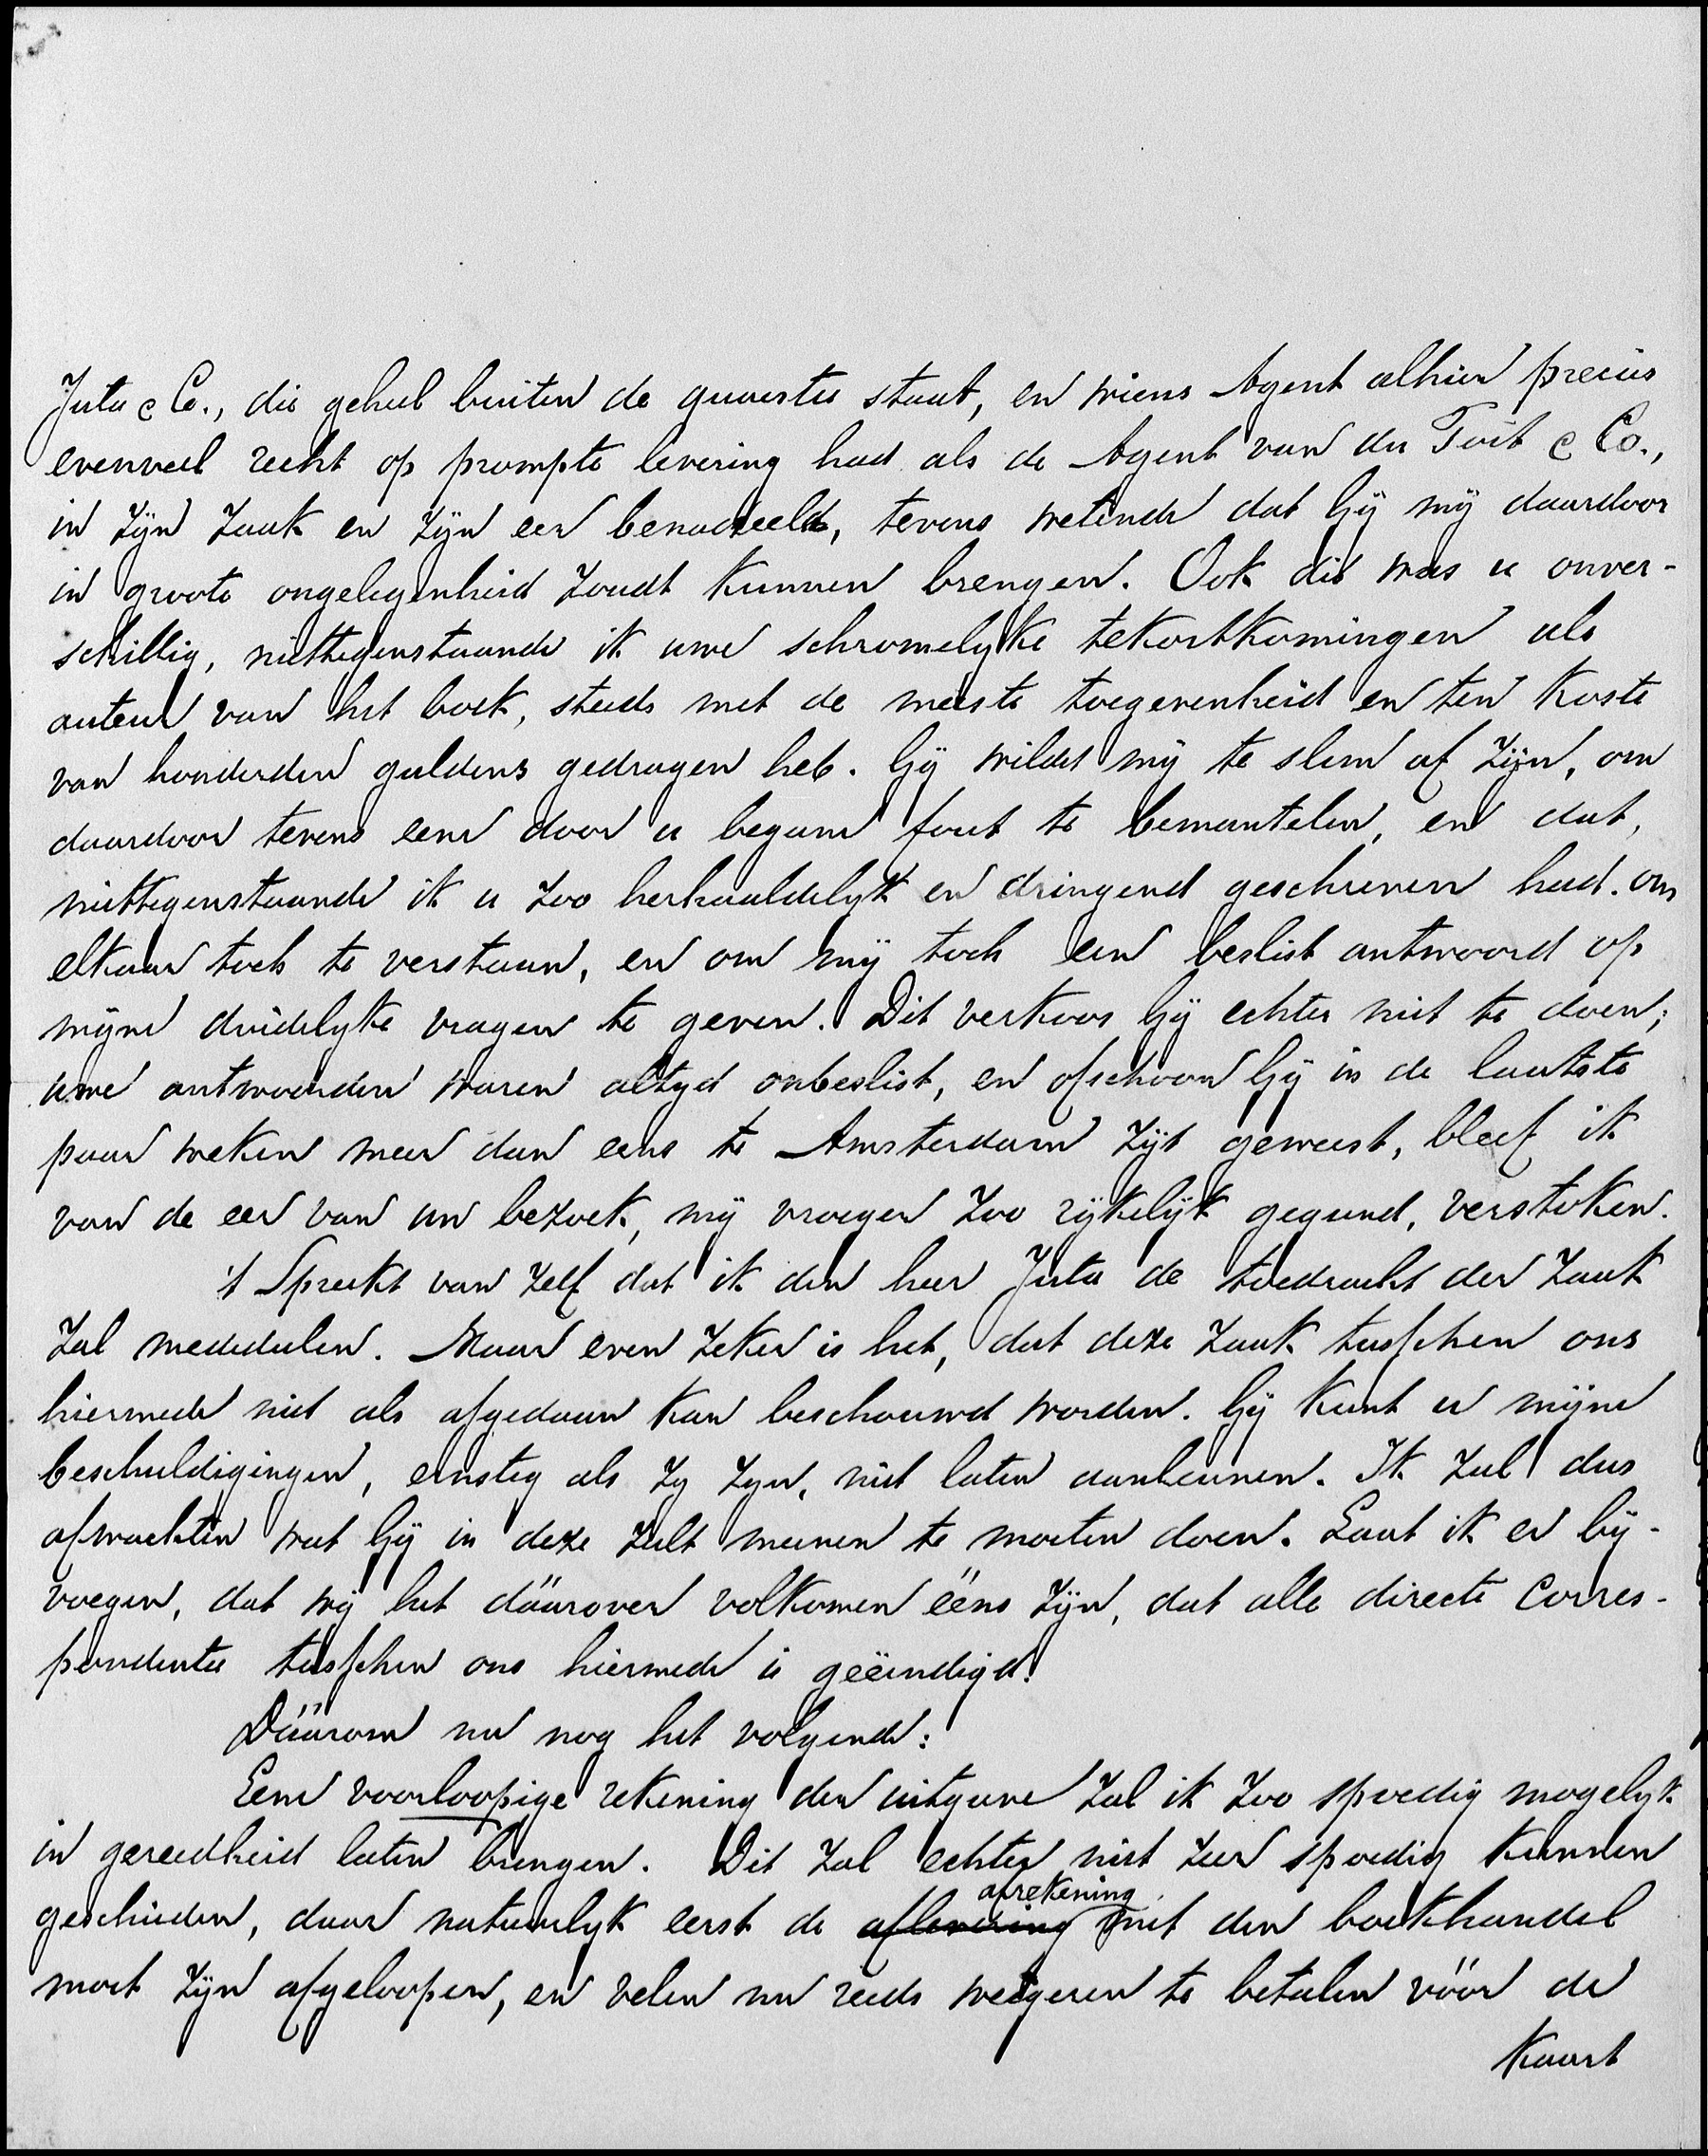 Juta & Co., die geheel buiten de quaestie staat, en wiens Agent alhier precies
evenveel recht op prompte levering had als de Agent van du Toit & Co.,
in zijn zaak en zijn eer benadeeld, tevens wetende dat Gij mij daardoor
in groote ongelegenheid zoudt kunnen brengen. Ook dit was u onver-
schillig, niettegenstaande ik uwe schromelijke tekortkomingen als
auteur van het boek, steeds met de meeste toegevenheid en ten koste
van honderden guldens gedragen heb. Gij wildet mij te slim af zijn, om
daardoor tevens eene door u begane fout te bemantelen, en dat,
niettegenstaande ik u zoo herhaaldelijk en dringend geschreven had. om
elkaar toch te verstaan, en om mij toch een beslist antwoord op
mijne duidelijke vragen te geven. Dit verkoos Gij echter niet te doen;
uwe antwoorden waren altijd onbeslist, en ofschoon Gij in de laatste
paar weken meer dan eens te Amsterdam zijt geweest, bleef ik
van de eer van uw bezoek, mij vroeger zoo rijkelijk gegund, verstoken.
't Spreekt van zelf dat ik den heer Juta de toedracht der zaak
zal mededeelen. Maar even zeker is het, dat deze zaak tusschen ons
hiermede niet als afgedaan kan beschouwd worden. Gij kunt u mijne
beschuldigingen, ernstig als zij zijn, niet laten aanleunen. Ik zal dus
afwachten wat Gij in deze zult meenen te moeten doen. Laat ik er bij-
voegen, dat wij het dáárover volkomen ééns zijn, dat alle directe Corres-
pondentie tusschen ons hiermede is geëindigd.
Dáárom nu nog het volgende:
Eene voorloopige rekening der uitgave zal ik zoo spoedig mogelijk
in gereedheid laten brengen. Dit zal echter niet zeer spoedig kunnen
geschieden, daar natuurlijk eerst de aflevering afrekening met den boekhandel
moet zijn afgeloopen, en velen nu reeds weigeren te betalen vóór de
Kaart